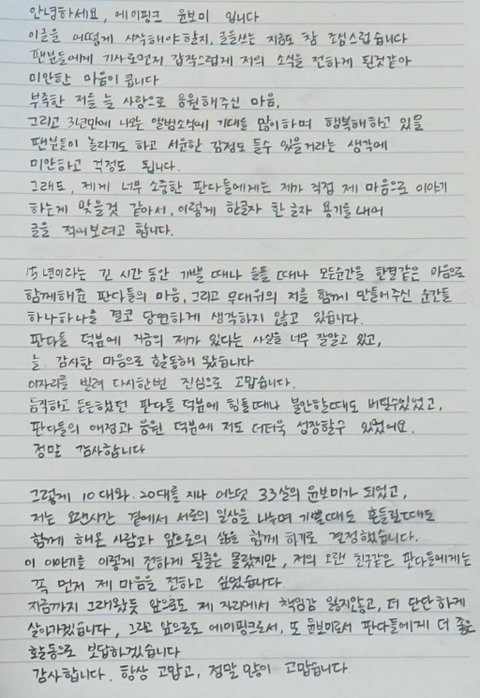 안녕하세요, 에이핑크 윤보미 입니다
이글을 어떻게 시작해야 할지, 글을쓰는 지금도 참 조심스럽습니다
팬분들에게 기사로먼저 갑작스럽게 저의 소식을 전하게 된것같아
미안한 마음이 큽니다
부족한 저를 늘 사랑으로 응원해주신 마음,
그리고 3년만에 나오는 앨범소식에 기대를 많이하며 행복해하고 있을
팬분들이 놀라기도 하고 서운한 감정도 들수 있을거라는 생각에
미안하고 걱정도 됩니다.
그래도, 제게 너무 소중한 판다들에게는 제가 직접 제 마음으로 이야기
하는게 맞을것 같아서, 이렇게 한글자 한 글자 용기를 내어
글을 적어보려고 합니다.
15년이라는 긴 시간동안 기쁠 때나 슬플 때나 모든순간을 한결같은 마음으로
함께해준 판다들의 마음, 그리고 무대위의 저를 함께 만들어주신 순간들
하나하나를 결코 당연하게 생각하지 않고 있습니다.
판다들 덕분에 지금의 제가 있다는 사실을 너무 잘알고 있고,
늘 감사한 마음으로 활동해 왔습니다
이자리를 빌려 다시한번 진심으로 고맙습니다.
듬직하고 든든했던 판다들 덕분에 힘들때나 불안할때도 버틸수있었고,
판다들의 애정과 응원 덕분에 저도 더더욱 성장할수 있었어요.
정말 감사합니다
그렇게 10대와 20대를 지나 어느덧 33살의 윤보미가 되었고,
저는 오랜시간 곁에서 서로의 일상을 나누며 기쁠때도 흔들릴때도
함께 해온 사람과 앞으로의 삶을 함께 하기로 결정했습니다.
이 이야기를 이렇게 전하게 될줄은 몰랐지만, 저의 오랜 친구같은 판다들에게는
꼭 먼저 제 마음을 전하고 싶었습니다
지금까지 그래왔듯 앞으로도 제 자리에서 책임감 잃지않고, 더 단단하게
살아가겠습니다, 그리고 앞으로도 에이핑크로서, 또 윤보미로서 판다들에게 더 좋은
활동으로 보답하겠습니다
감사합니다. 항상 고맙고, 정말 많이 고맙습니다.